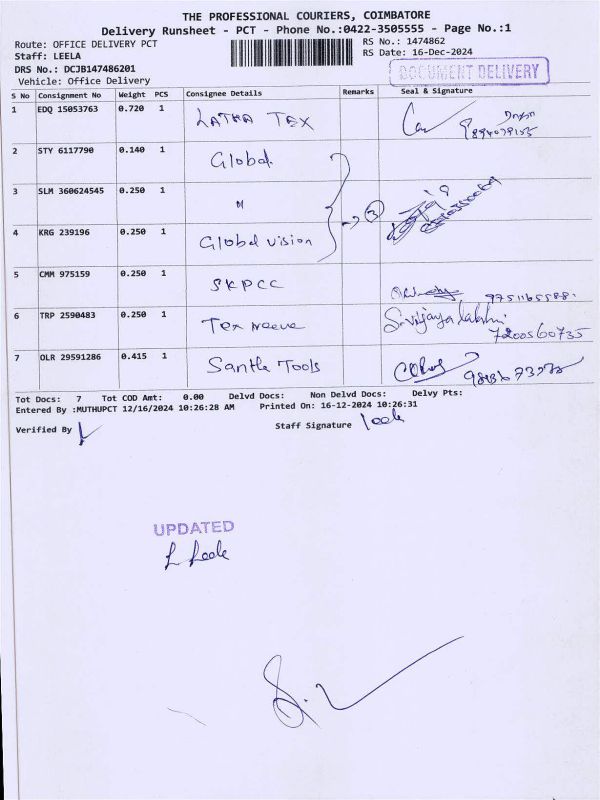 THE PROFESSIONAL COURIERS, COIMBATORE
Delivery Runsheet - PCT - Phone No.:0422-3505555 - Page No.:1
Route: OFFICE DELIVERY PCT
RS No.: 1474862
Staff: LEELA
RS Date: 16-Dec-2024
DRS No.: DCJB147486201
DOCUMENT DELIVERY
Vehicle: Office Delivery
S No Consignment No Weight PCS Consignee Details Remarks Seal & Signature
1 EDQ 15053763 0.720 1 LATHA TEX
2 STY 6117790 0.140 1 Global
3 SLM 360624545 0.250 1 " → 3
4 KRG 239196 0.250 1 Global vision
5 CMM 975159 0.250 1 SKPCC
6 TRP 2590483 0.250 1 S.vijayalakshmi
7200560735
7 OLR 29591286 0.415 1 Santha Tools
Tot Docs: 7 Tot COD Amt: 0.00 Delvd Docs: Non Delvd Docs: Delvy Pts:
Entered By :MUTHUPCT 12/16/2024 10:26:28 AM Printed On: 16-12-2024 10:26:31
Verified By Staff Signature Leela
UPDATED
L Leela